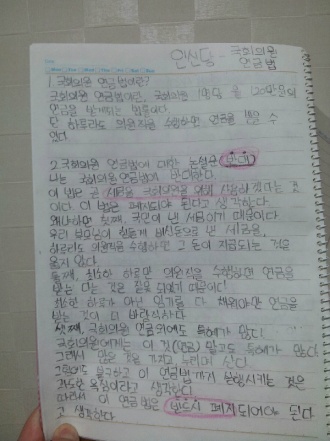 인신당 - 국회의원
연금법
1. 국회의원 연금법이란?
국회의원 연금법이란, 국회의원 1명당 월 120만원의
연금을 받게되는 법률이다.
단 하루라도 의원직을 수행하면 연금을 받을 수
있다.
2. 국회의원 연금법에 대한 논설문 (반대)
나는 국회의원 연금법에 반대한다.
이 법은 곧 세금을 국회의원을 위해 사용하겠다는 것
이다. 이 법은 폐지되야 된다고 생각한다.
왜냐하면 첫째, 국민이 낸 세금이기 때문이다.
우리 부모님이 힘들게 버신돈으로 낸 세금을,
하루라도 의원직을 수행하면 그 돈이 지급되는 것은
옳지 않다.
둘째, 최소한 하루만 의원직을 수행하면 연금을
받는 다는 것은 잘못 되었기 때문이다!
최소한 하루가 아닌 임기를 다 채워야만 연금을
받는 것이 더 바람직하다.
셋째, 국회의원 연금외에도 특혜가 많다!
국회의원에게는 이 것(연금) 말고도 특혜가 많다.
그래서 많은 것을 가지고 누리며 산다.
그럼에도 불구하고 이 연금법까지 실행시키는 것은
과도한 욕심이라고 생각한다.
따라서 이 연금법은 반드시 폐지되어야 된다
고 생각한다.